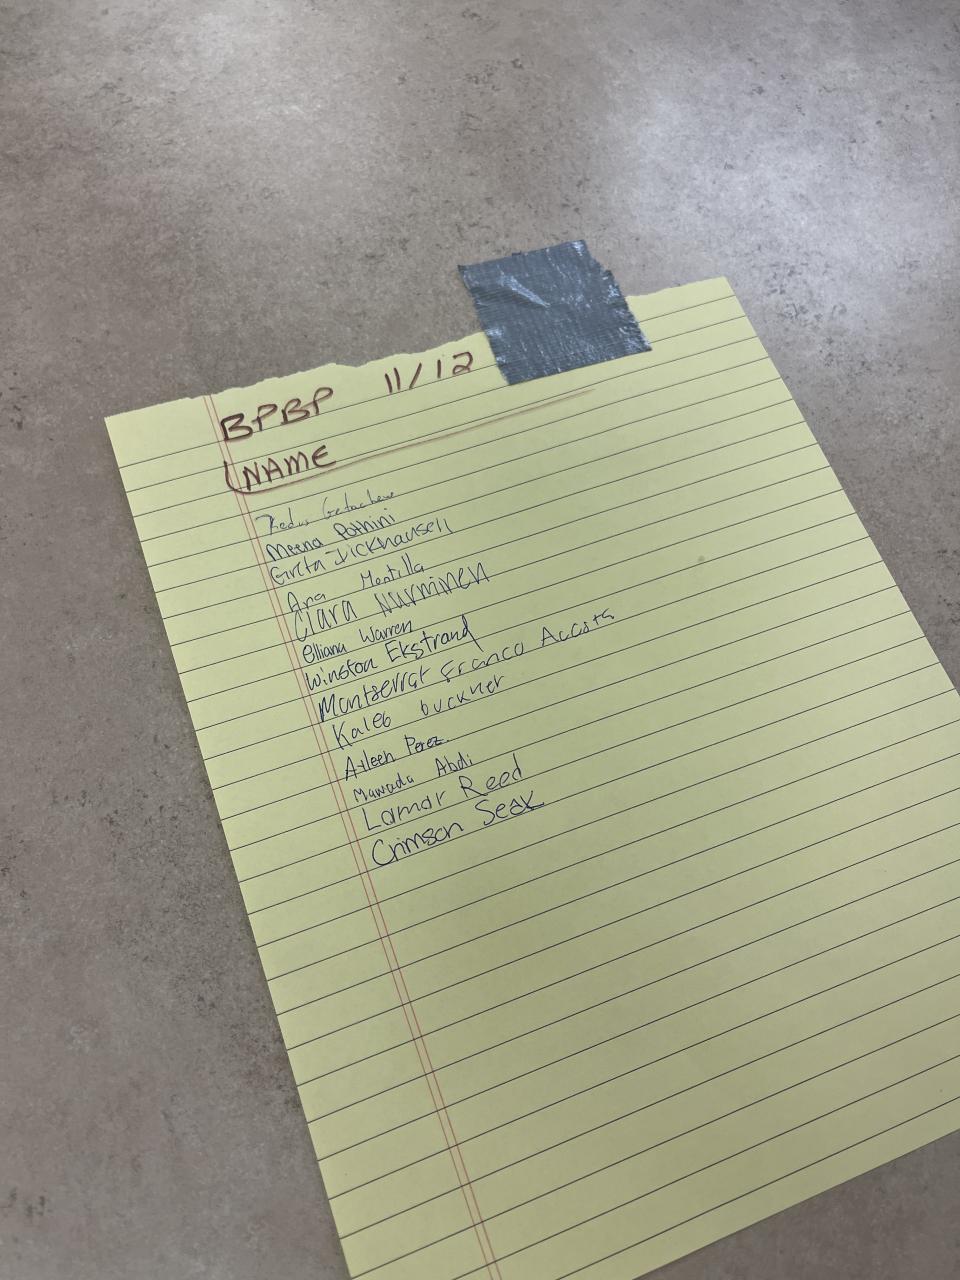 BPBP 11/12
NAME
Meena Pothini
Greta Dickhausell
Ana Montilla
Clara Nurminen
elliana Warren
Winston Ekstrand
Montserrat Franco Accosta
Kaleb buckner
Aileen Perez.
Mawada Abdi
Lamar Reed
Crimson Seek